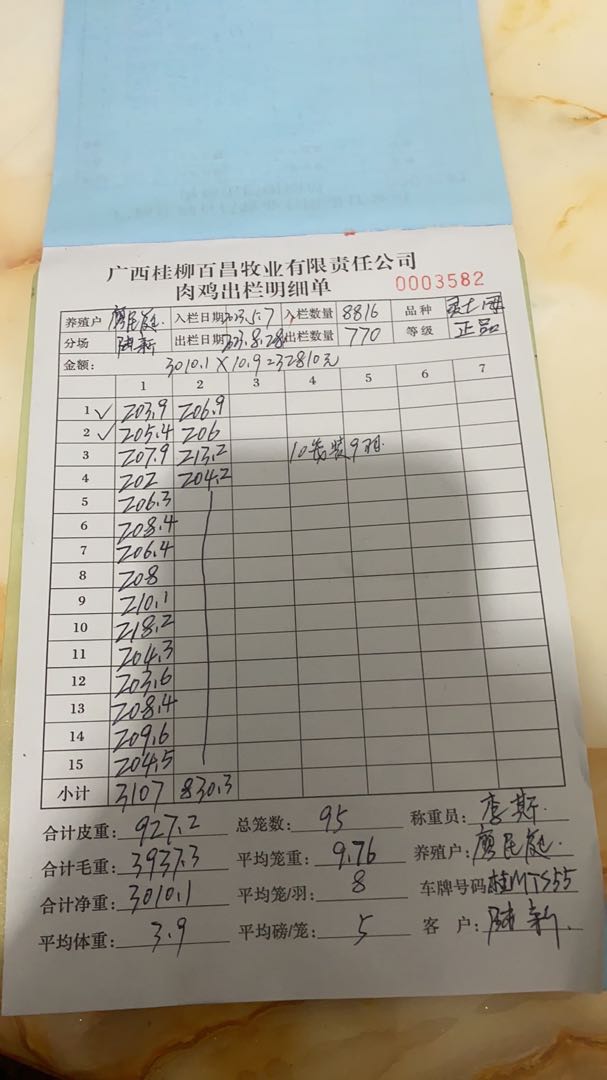 广西桂柳百昌牧业有限责任公司
肉鸡出栏明细单 0003582
养殖户 入栏日期 2023.5.7 入栏数量 8816 品种
分场 陆新 出栏日期 2023.8.28 出栏数量 770 等级 正品
金额: 3010.1×10.9=32810元
1 2 3 4 5 6 7
1 ✓ 203.9 206.9
2 ✓ 205.4 206
3 207.9 213.2 10笼装9羽
4 202 204.2
5 206.3
6 208.4
7 206.4
8 208
9 210.1
10 218.2
11 204.3
12 203.6
13 208.4
14 209.6
15 204.5
小计 3107 830.3
合计皮重: 927.2 总笼数: 95 称重员: 李斯
合计毛重: 3937.3 平均笼重: 9.76 养殖户:
合计净重: 3010.1 平均笼/羽: 8 车牌号码 桂MTS55
平均体重: 3.9 平均磅/笼: 5 客户: 陆新